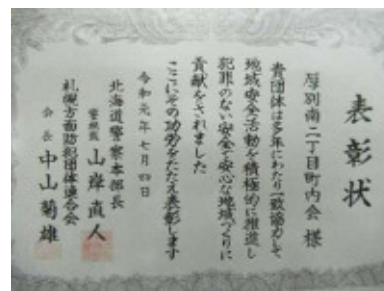 表彰状
厚別南二丁目町内会 様
貴団体は多年にわたり一致協力して
地域安全活動を積極的に推進し
犯罪のない安全で安心な地域づくりに
貢献をされました
ここにその功労をたたえ表彰します
令和元年七月四日
北海道警察本部長
警視監 山岸直人
札幌方面防犯団体連合会
会長 中山菊雄